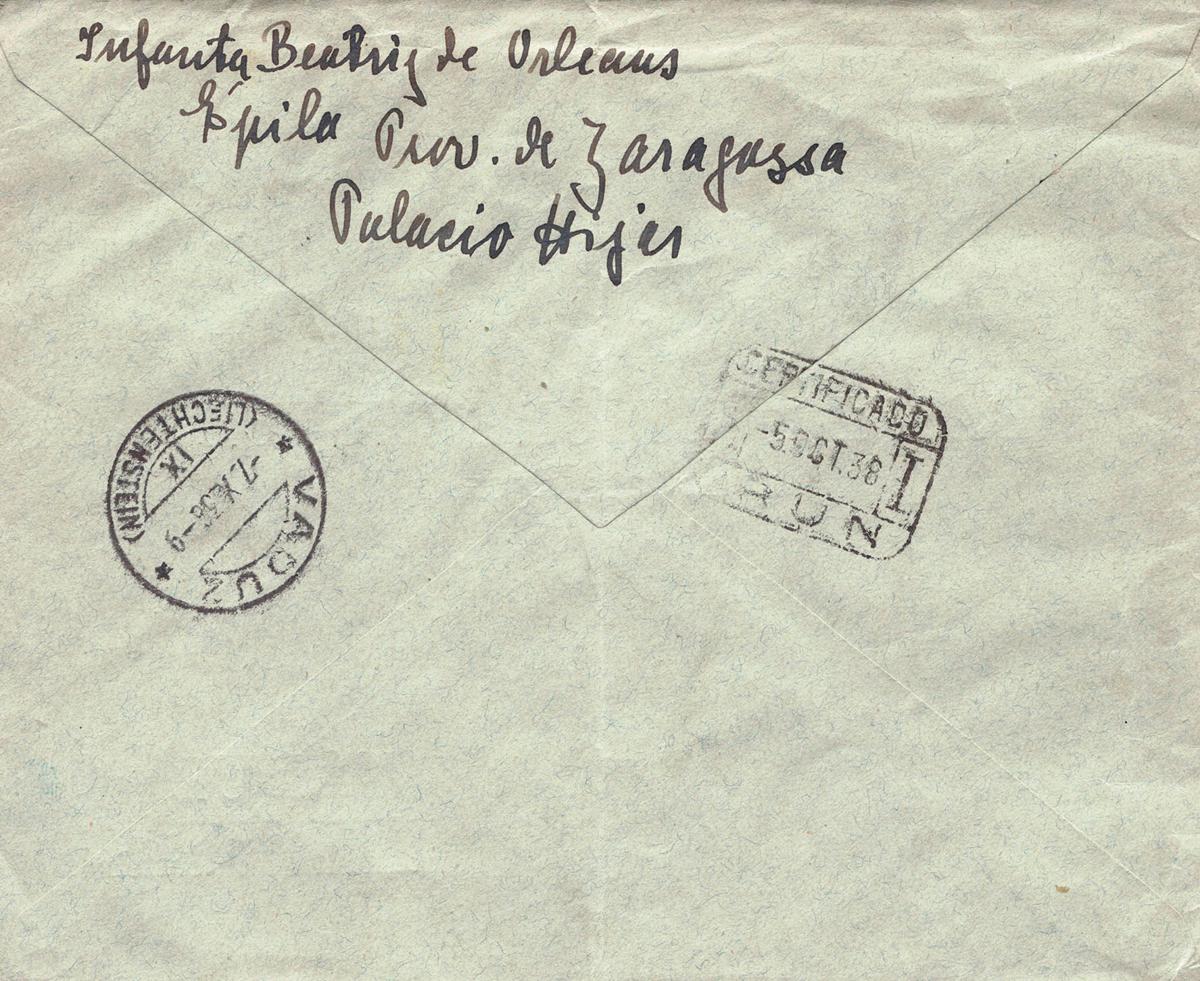 Infanta Beatriz de Orleans
Épila Prov. de Zaragossa
Palacio Hijar
CERTIFICADO
-5 OCT. 38
I
IRUN
VADUZ
-7.X.38-9
IX
(LIECHTENSTEIN)